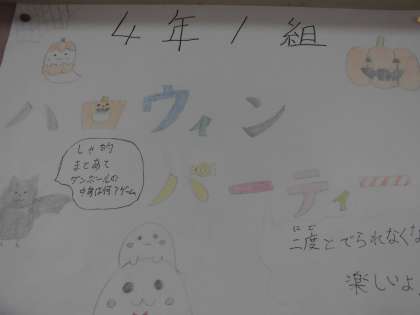 4年1組
ハロウィン
パーティー
しゃ的
まとあて
ダンボールの
中身は何？ゲーム
にど
二度とでられなくな
楽しいよ